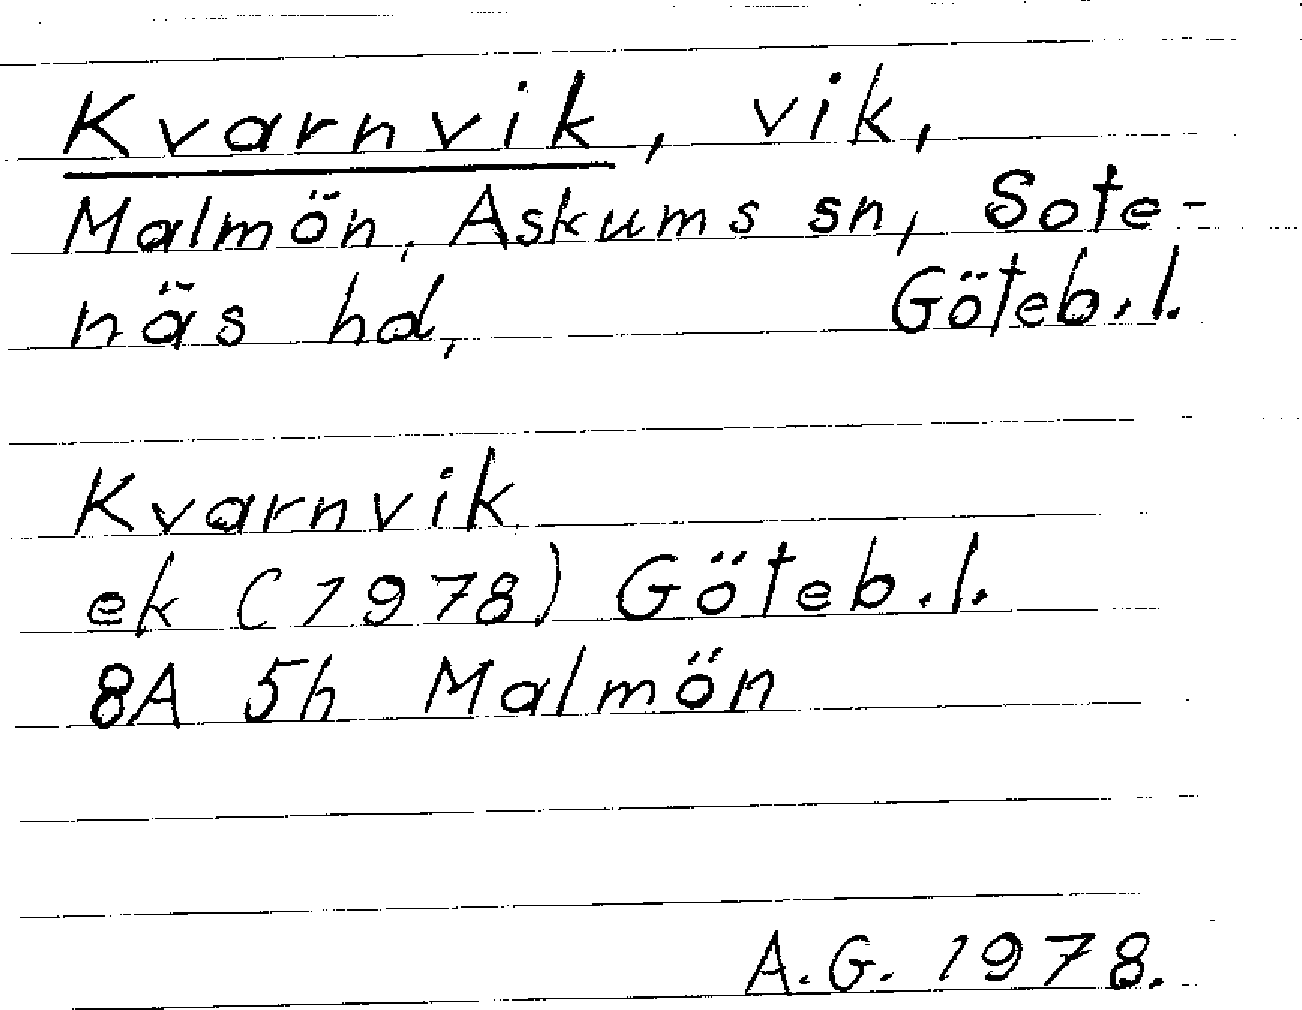 Kvarnvik, vik,
Malmön, Askums sn, Sote-
näs hd, Göteb.l.
Kvarnvik
ek (1978) Göteb.l.
8A 5h Malmön
A.G. 1978.